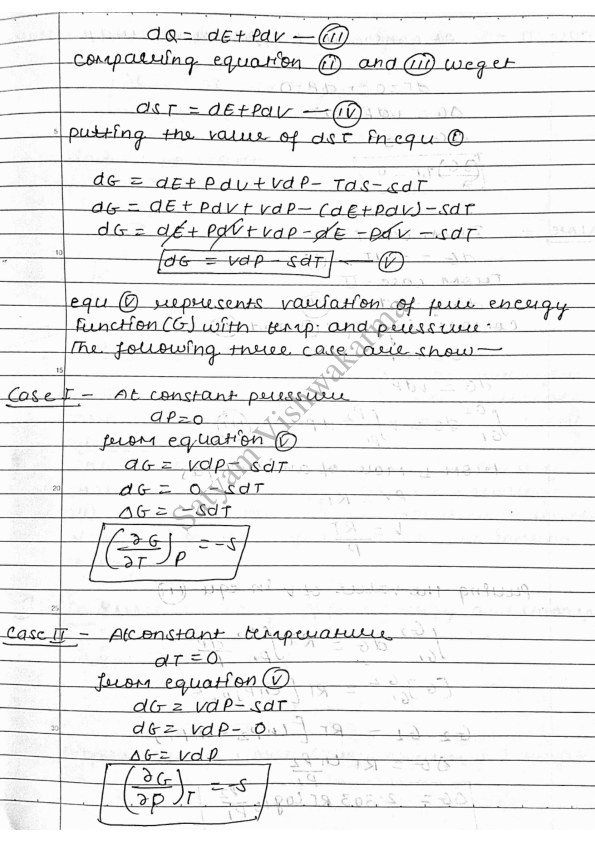 dQ = dE + PdV — (iii)
comparing equation (ii) and (iii) we get
dST = dE + PdV — (iv)
putting the value of dST in equ (i)
dG = dE + PdV + VdP - TdS - SdT
dG = dE + PdV + VdP - (dE + PdV) - SdT
dG = dE + PdV + VdP - dE - PdV - SdT
dG = VdP - SdT — (V)
equ (V) represents variation of free energy
function (G) with temp. and pressure.
The following three case are show —
Case I - At constant pressure
dP = 0
from equation (V)
dG = VdP - SdT
dG = 0 - SdT
ΔG = -SdT
(∂G/∂T)P = -S
Case II - At constant temperature
dT = 0
from equation (V)
dG = VdP - SdT
dG = VdP - 0
ΔG = VdP
(∂G/∂P)T = -S
Satyam Vishwakarma